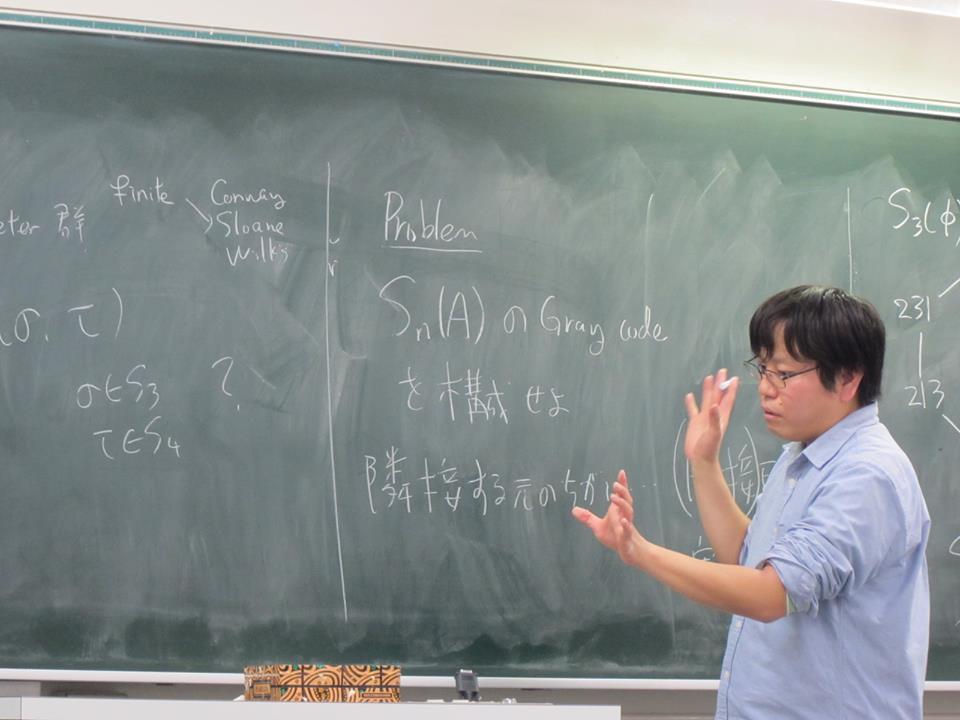 finite
Conway
Sloane
Wilks
eter 群
(σ, τ)
σ∈S₃ ?
τ∈S₄
Problem
Sₙ(A) の Gray code
を構成せよ
隣接する元のちがい…
S₃(φ)
231
213